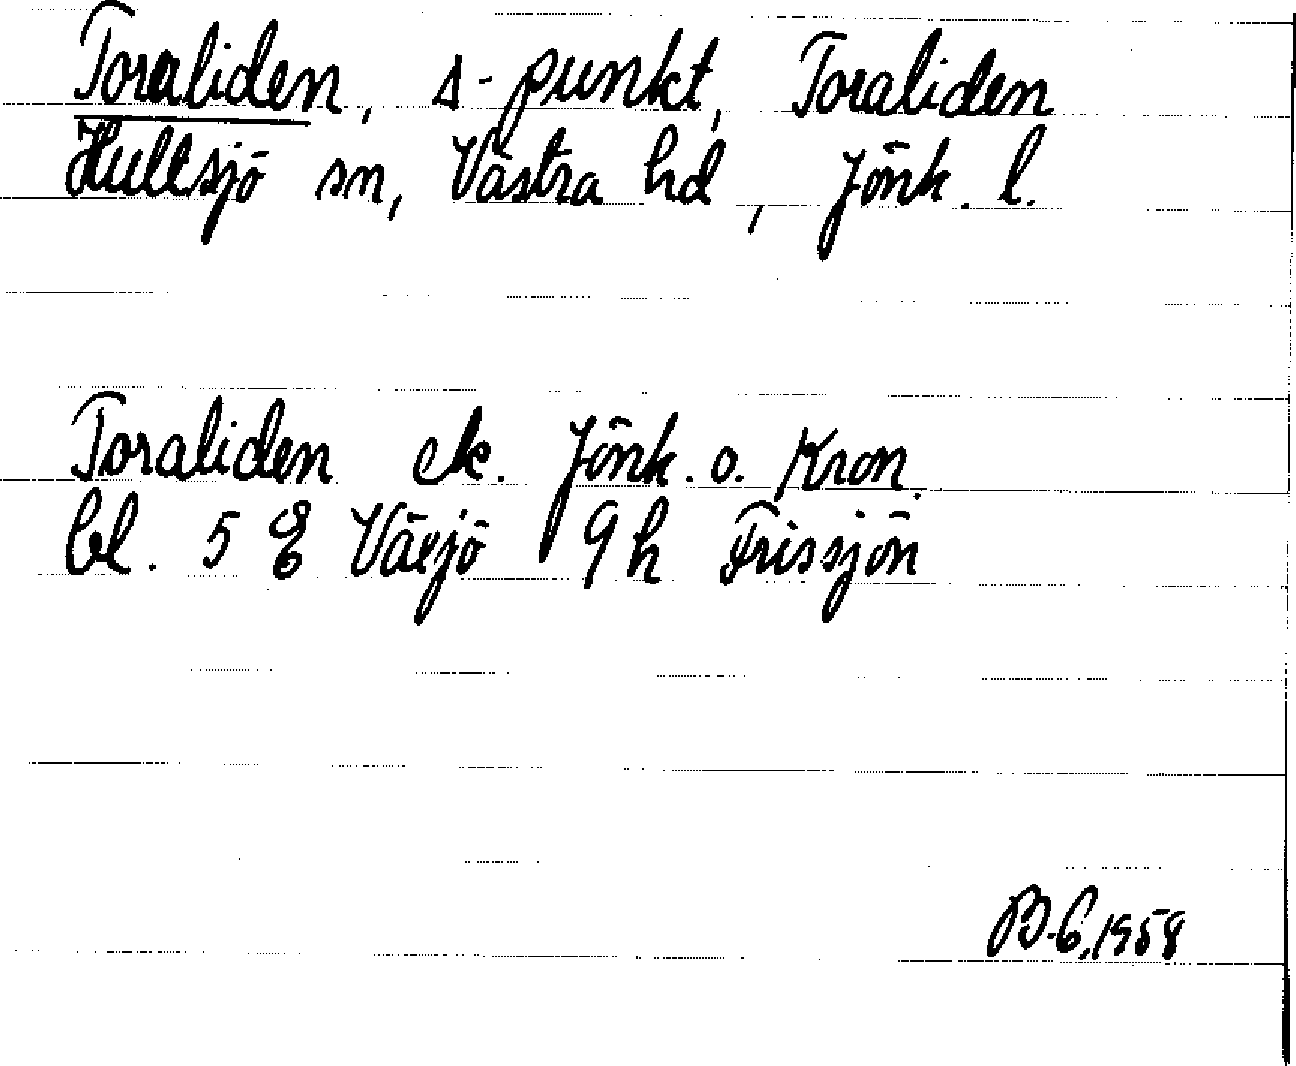 Toraliden, s-punkt, Toraliden
Hultsjö sn, Västra hd, Jönk. l.
Toraliden ek. Jönk. o. Kron.
bl. 5 E Växjö 9h Frissjön
1958